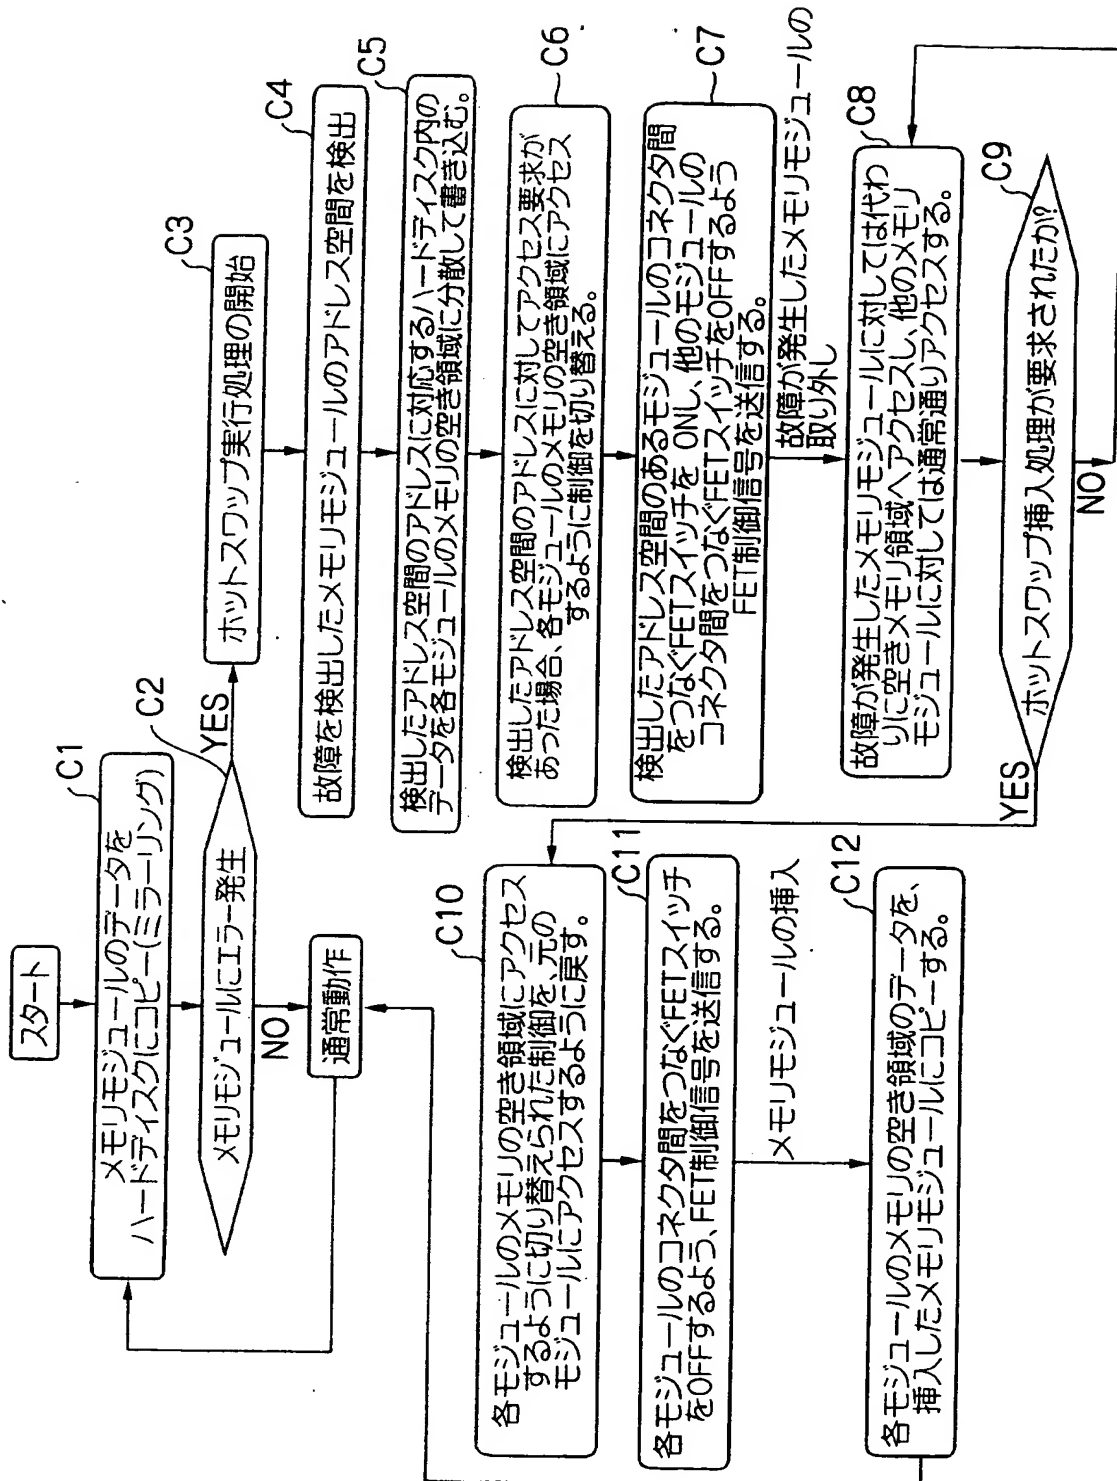 スタート
C1
メモリモジュールのデータを
ハードディスクにコピー(ミラーリング)
C2
メモリモジュールにエラー発生
YES
NO
通常動作
C3
ホットスワップ実行処理の開始
C4
故障を検出したメモリモジュールのアドレス空間を検出
C5
検出したアドレス空間のアドレスに対応するハードディスク内の
データを各モジュールのメモリの空き領域に分散して書き込む。
C6
検出したアドレス空間のアドレスに対してアクセス要求が
あった場合、各モジュールのメモリの空き領域にアクセス
するように制御を切り替える。
C7
検出したアドレス空間のあるモジュールのコネクタ間
をつなぐFETスイッチを ON し、他のモジュールの
コネクタ間をつなぐFETスイッチをOFFするよう
FET制御信号を送信する。
故障が発生したメモリモジュールの
取り外し
C8
故障が発生したメモリモジュールに対しては代わ
りに空きメモリ領域へアクセスし、他のメモリ
モジュールに対しては通常通りアクセスする。
C9
ホットスワップ挿入処理が要求されたか?
NO
YES
C10
各モジュールのメモリの空き領域にアクセス
するように切り替えられた制御を、元の
モジュールにアクセスするように戻す。
C11
各モジュールのコネクタ間をつなぐFETスイッチ
をOFFするよう、FET制御信号を送信する。
メモリモジュールの挿入
C12
各モジュールのメモリの空き領域のデータを、
挿入したメモリモジュールにコピーする。